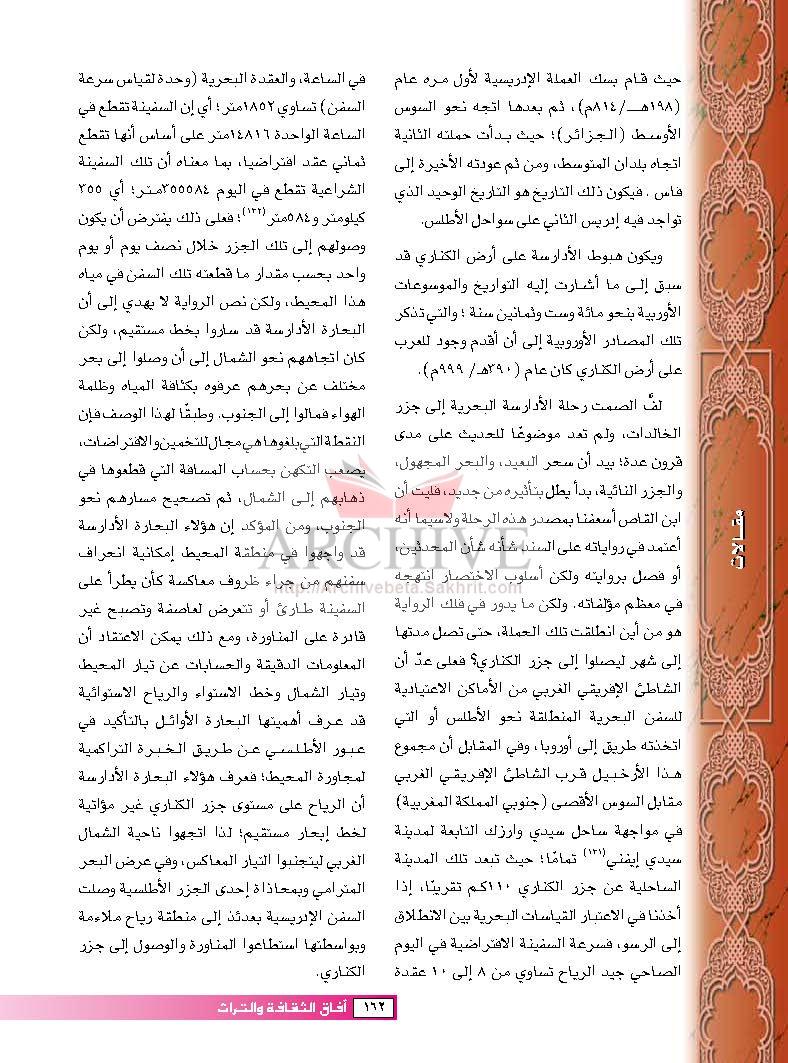 حيث قام بسك العملة الإدريسية لأول مره عام
(١٩٨هـــ/٨١٤م)، ثم بعدها اتجه نحو السوس
الأوسط (الجزائر)؛ حيث بدأت حملته الثانية
اتجاه بلدان المتوسط، ومن ثم عودته الأخيرة إلى
فاس . فيكون ذلك التاريخ هو التاريخ الوحيد الذي
تواجد فيه إدريس الثاني على سواحل الأطلس.
ويكون هبوط الأدارسة على أرض الكناري قد
سبق إلى ما أشارت إليه التواريخ والموسوعات
الأوربية بنحو مائة وست وثمانين سنة ؛ والتي تذكر
تلك المصادر الأوروبية إلى أن أقدم وجود للعرب
على أرض الكناري كان عام (٣٩٠هـ/ ٩٩٩م).
لفَّ الصمت رحلة الأدارسة البحرية إلى جزر
الخالدات، ولم تعد موضوعًا للحديث على مدى
قرون عدة؛ بيد أن سحر البعيد، والبحر المجهول،
والجزر النائية، بدأ يطل بتأثيره من جديد، فليت أن
ابن القاص أسعفنا بمصدر هذه الرحلة ولاسيما أنه
أعتمد في رواياته على السند شأنه شأن المحدثين،
أو فصل بروايته ولكن أسلوب الاختصار انتهجه
في معظم مؤلفاته. ولكن ما يدور في فلك الرواية
هو من أين انطلقت تلك العملة، حتى تصل مدتها
إلى شهر ليصلوا إلى جزر الكناري؟ فعلى عدّ أن
الشاطئ الإفريقي الغربي من الأماكن الاعتيادية
للسفن البحرية المنطلقة نحو الأطلس أو التي
اتخذته طريق إلى أوروبا، وفي المقابل أن مجموع
هذا الأرخبيل قرب الشاطئ الإفريقي الغربي
مقابل السوس الأقصى (جنوبي المملكة المغربية)
في مواجهة ساحل سيدي وارزك التابعة لمدينة
سيدي إيفني(١٣١) تمامًا؛ حيث تبعد تلك المدينة
الساحلية عن جزر الكناري ١١٠كم تقريبًا، إذا
أخذنا في الاعتبار القياسات البحرية بين الانطلاق
إلى الرسو، فسرعة السفينة الافتراضية في اليوم
الصاحي جيد الرياح تساوي من ٨ إلى ١٠ عقدة
في الساعة، والعقدة البحرية (وحدة لقياس سرعة
السفن) تساوي ١٨٥٢متر؛ أي إن السفينة تقطع في
الساعة الواحدة ١٤٨١٦متر على أساس أنها تقطع
ثماني عقد افتراضيا، بما معناه أن تلك السفينة
الشراعية تقطع في اليوم ٣٥٥٥٨٤متر؛ أي ٣٥٥
كيلومتر و٥٨٤متر(١٣٢)؛ فعلى ذلك يفترض أن يكون
وصولهم إلى تلك الجزر خلال نصف يوم أو يوم
واحد بحسب مقدار ما قطعته تلك السفن في مياه
هذا المحيط، ولكن نص الرواية لا يهدي إلى أن
البحارة الأدارسة قد ساروا بخط مستقيم، ولكن
كان اتجاههم نحو الشمال إلى أن وصلوا إلى بحر
مختلف عن بحرهم عرفوه بكثافة المياه وظلمة
الهواء فمالوا إلى الجنوب. وطبقًا لهذا الوصف فإن
النقطة التي بلغوها هي مجال للتخمين والافتراضات،
يصعب التكهن بحساب المسافة التي قطعوها في
ذهابهم إلى الشمال، ثم تصحيح مسارهم نحو
الجنوب، ومن المؤكد إن هؤلاء البحارة الأدارسة
قد واجهوا في منطقة المحيط إمكانية انحراف
سفنهم من جراء ظروف معاكسة كأن يطرأ على
السفينة طارئ أو تتعرض لعاصفة وتصبح غير
قادرة على المناورة، ومع ذلك يمكن الاعتقاد أن
المعلومات الدقيقة والحسابات عن تيار المحيط
وتيار الشمال وخط الاستواء والرياح الاستوائية
قد عرف أهميتها البحارة الأوائل بالتأكيد في
عبور الأطلسي عن طريق الخبرة التراكمية
لمجاورة المحيط؛ فعرف هؤلاء البحارة الأدارسة
أن الرياح على مستوى جزر الكناري غير مؤاتية
لخط إبحار مستقيم؛ لذا اتجهوا ناحية الشمال
الغربي ليتجنبوا التيار المعاكس، وفي عرض البحر
المترامي وبمحاذاة إحدى الجزر الأطلسية وصلت
السفن الإدريسية بعدئذ إلى منطقة رياح ملاءمة
وبواسطتها استطاعوا المناورة والوصول إلى جزر
الكناري.
مقالات
ARCHIVE
http://Archivebeta.Sakhrit.com
١٦٢ آفاق الثقافة والتراث